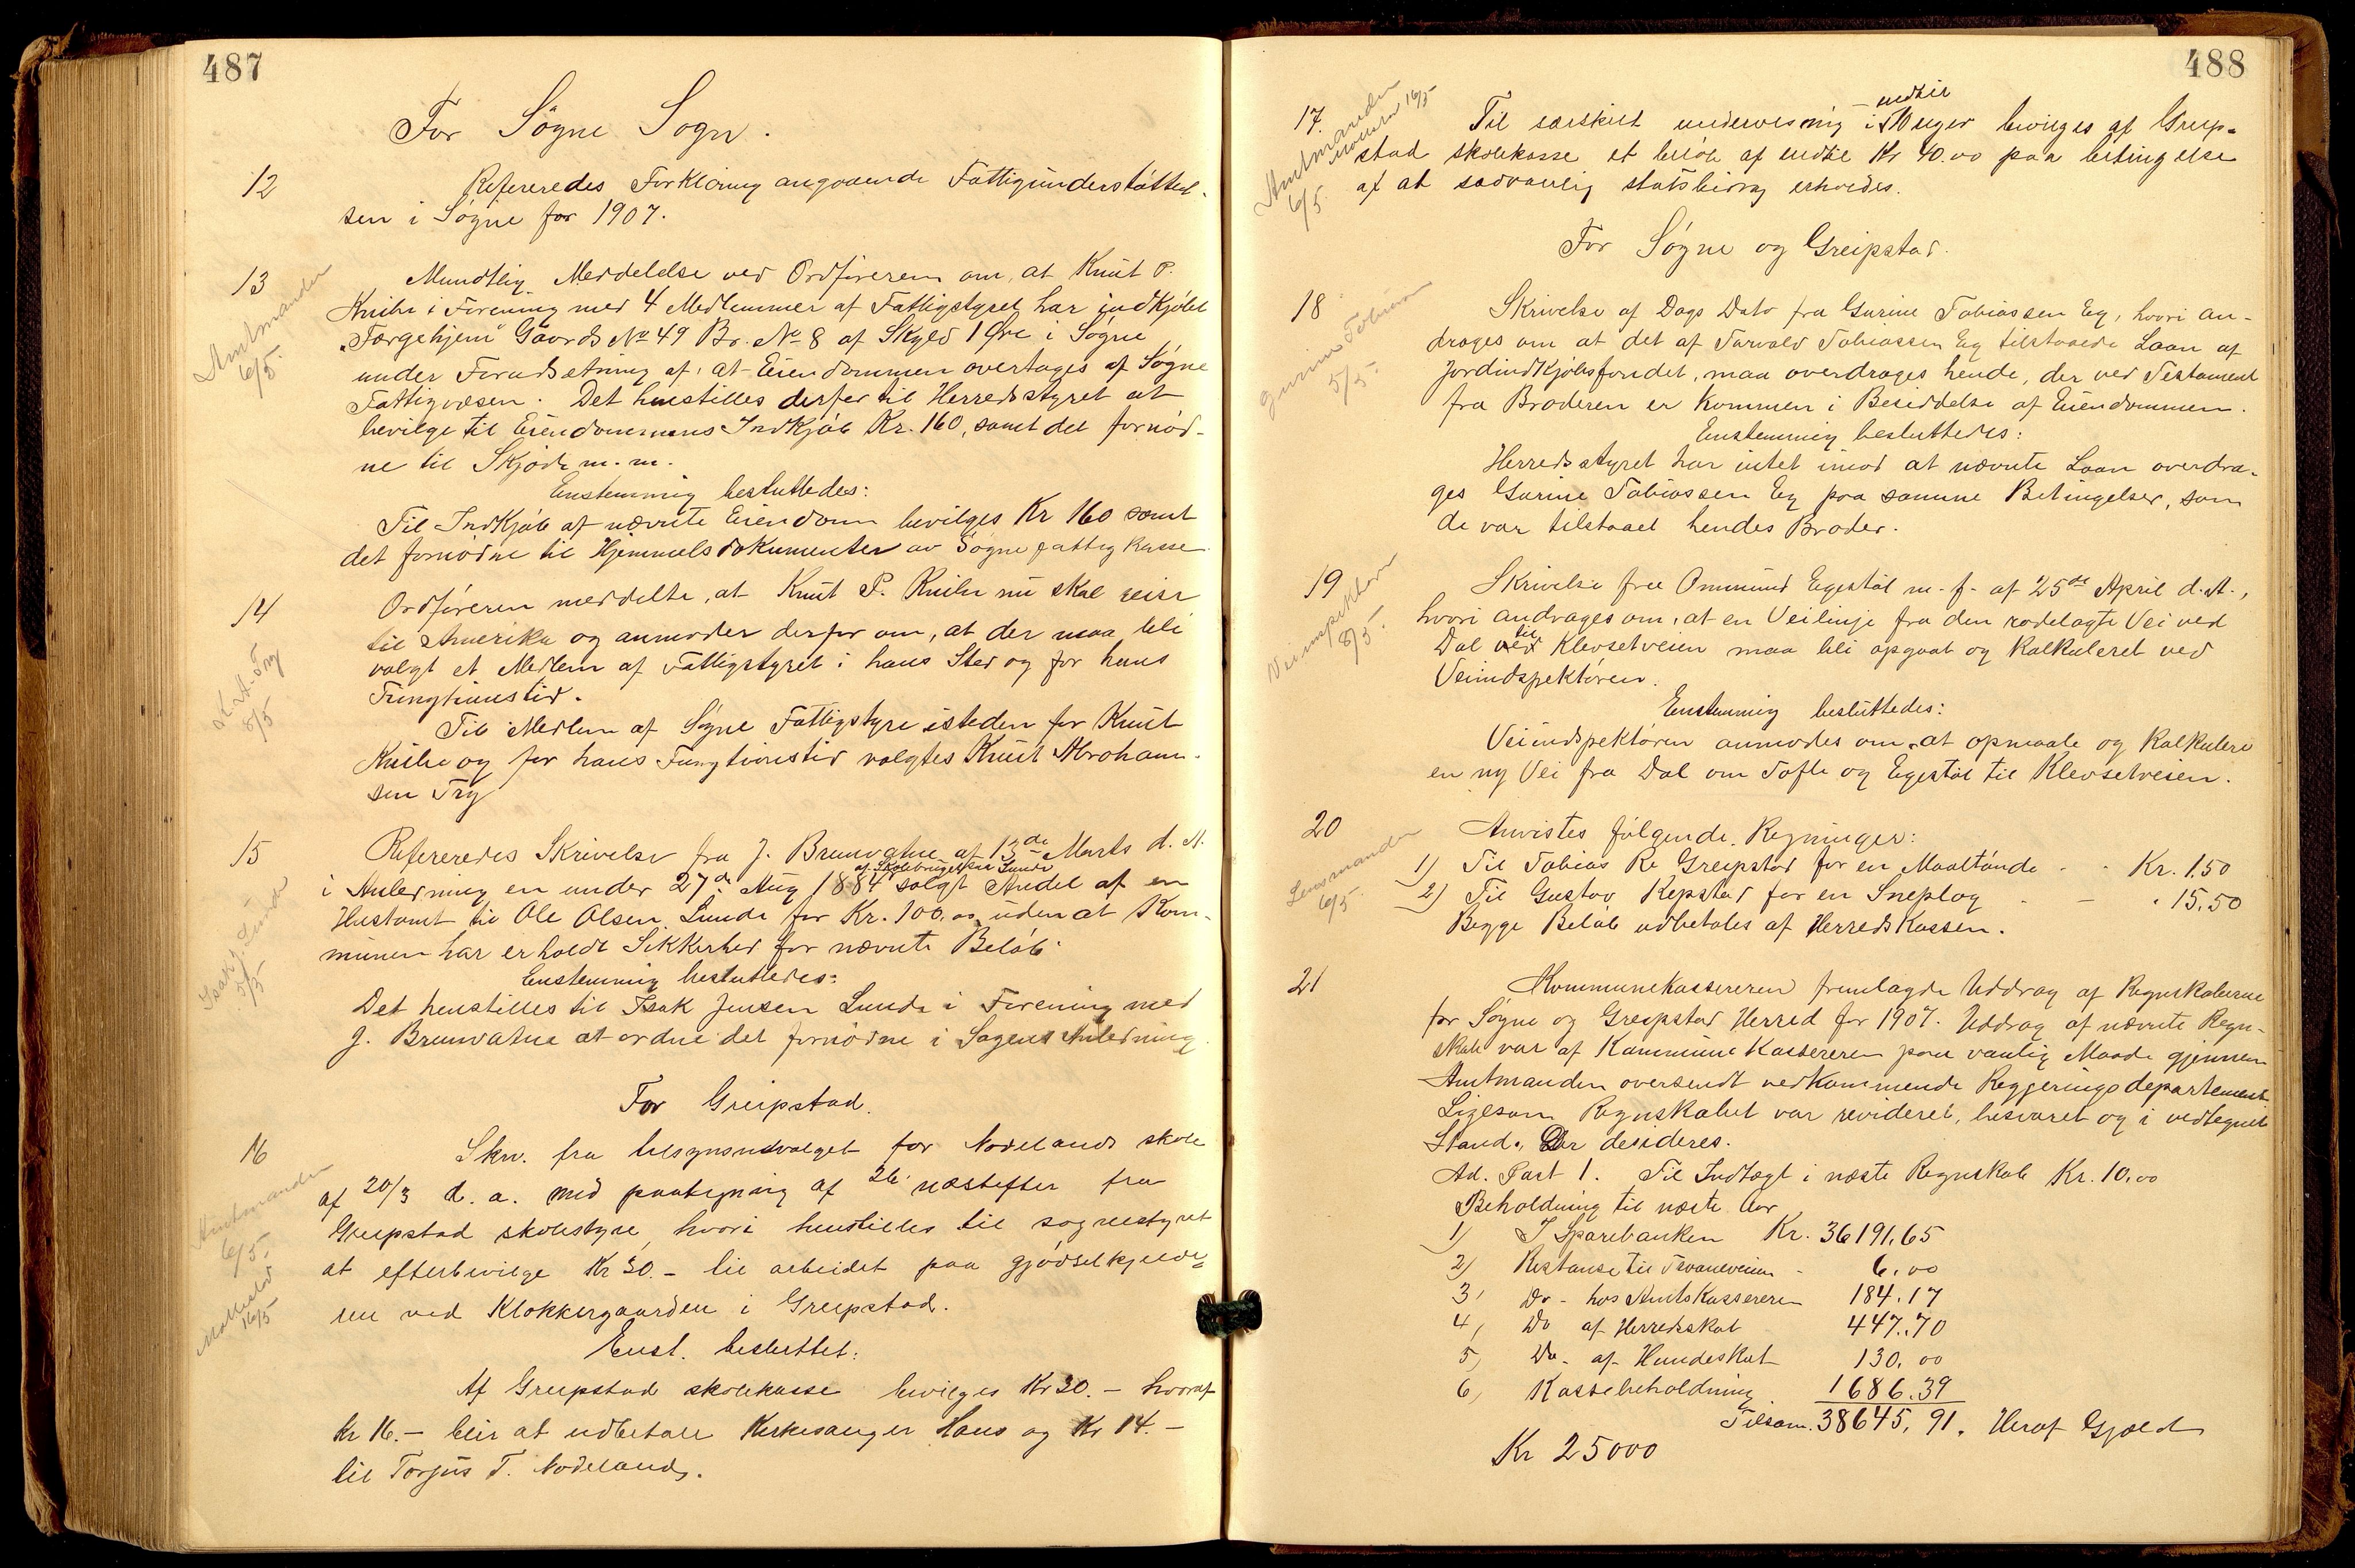 487
For Søgne Sogn.
12 Refereredes Forklaring angaaende Fattigunderstøttel-
sen i Søgne for 1907.
13 Mundtlig Meddelelse ved Ordføreren om, at Knut P.
Amtmanden 6/5.
Knibe i Forening med 4 Medlemmer af Fattigstyret har indkjøbt
"Færgehjem" Gaards No 49 Br. No 8 af Skyld 1 Øre i Søgne
under Forudsætning af, at Eiendommen overtages af Søgne
Fattigvæsen. Det henstilles derfor til Herredsstyret at
bevilge til Eiendommens Indkjøb Kr. 160, samt det fornød-
ne til Skjøde m.m.
Enstemmig besluttedes:
Til Indkjøb af nævnte Eiendom bevilges Kr 160 samt
det fornødne til Hjemmelsdokumenter av Søgne fattigkasse
14 Ordføreren meddelte, at Knut P. Knibe nu skal reise
til Amerika og anmoder derfor om, at der maa bli
K. A. Try 8/5
valgt et Medlem af Fattigstyret i hans Sted og for hans
Fungtionstid.
Til Medlem af Søgne Fattigstyre isteden for Knut
Knibe og for hans Fungtionstid valgtes Knut Abraham-
sen Try
15 Refereredes Skrivelse fra J. Brunvatne af 13de Marts d. A.
af Skolebruget paa Lunde
i Anledning en under 27de Aug 1884 solgt Andel af en
Hustomt til Ole Olsen Lunde for Kr. 100.00 uden at Kom-
Isak J. Lunde 5/5
munen har erholdt Sikkerhed for nævnte Beløb.
Enstemmig besluttedes:
Det henstilles til Isak Jensen Lunde i Forening med
J. Brunvatne at ordne det fornødne i Sagens Anledning.
For Greipstad.
16 Skr. fra tilsynsudvalget for Nodelands skole
Amtmanden 6/5.
af 20/3 d. a. med paategning af 26 næstefter fra
Greipstad skolestyre, hvori henstilles til sognestyret
at efterbevilge Kr 30.- til arbeidet paa gjødselkjelde-
16/5
ren ved Klokkergaarden i Greipstad.
Enst. besluttet:
Af Greipstad skolekasse bevilges Kr 30.- hvoraf
Kr 16.- blir at udbetale Kirkesanger Haus og Kr 14.-
til Torjus T. Nodeland.
488
17. Til særskilt undervisning i indtil 10 uger bevilges af Greip-
Amtmanden 6/5. 16/5
stad skolekasse et beløb af indtil Kr 40.00 paa betingelse
af at sædvanlig statsbidrag erholdes.
For Søgne og Greipstad.
18 Skrivelse af Dags Dato fra Gurine Tobiassen Eg, hvori an-
Gurine Tobiassen 5/5.
drages om at det af Torvald Tobiassen Eg tilstaaede Laan af
Jordindkjøbsfondet, maa overdrages hende, der ved Testament
fra Broderen er kommen i Besiddelse af Eiendommen.
Enstemmig besluttedes:
Herredsstyret har intet imod at nævnte Laan overdra-
ges Gurine Tobiassen Eg paa samme Betingelser, som
de var tilstaaet hendes Broder.
19 Skrivelse fra Ommund Egestøl m.fl. af 25de April d. A.,
Veiinspektøren 8/5.
hvori andrages om, at en Veilinje fra den rodelagte Vei ved
Dal til Klevsetveien maa bli opgaat og kalkuleret ved
Veiindspektøren.
Enstemmig besluttedes:
Veiindspektøren anmodes om at opmaale og kalkulere
en ny Vei fra Dal om Tofte og Egestøl til Klevsetveien.
20 Anvistes følgende Regninger:
Lensmanden 6/5.
1) Til Tobias Rs Greipstad for en Maaltønde - - Kr. 1.50
2) Til Gustav Repstad for en Sneplog - - " 15.50
Begge Beløb udbetales af Herredskassen.
21 Kommunekassereren fremlagde Uddrag af Regnskaberne
for Søgne og Greipstad Herred for 1907. Uddrag af nævnte Regn-
skab var af Kommunekassereren paa vanlig Maade gjennem
Amtmanden oversendt vedkommende Regjeringsdepartement
Ligesom Regnskabet var revideret, besvaret og i vedtegnet
Stand. Der desideres.
Ad. Post 1. Til Indtægt i næste Regnskab Kr. 10.00
Beholdning til næste Aar
1) I Sparebanken Kr. 36191.65
2) Restanse til Tvaneveien - 6.00
3) Do - hos Amtskassereren 184.17
4) Do af Herredsskat 447.70
5) Do - af Hundeskat 130.00
6) Kassebeholdning 1686.39
Tilsam. 38645.91. Heraf Gjæld
Kr 25000